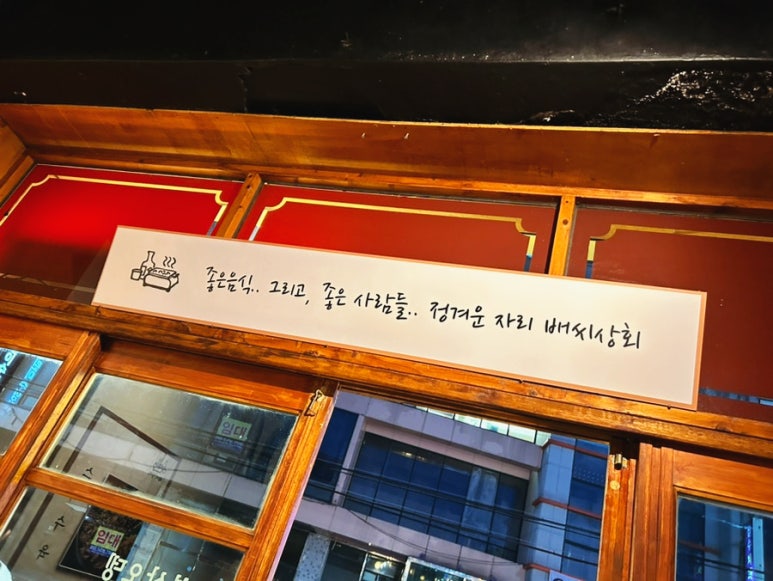 좋은음식.. 그리고, 좋은 사람들.. 정겨운 자리 배씨상회
임대
임대